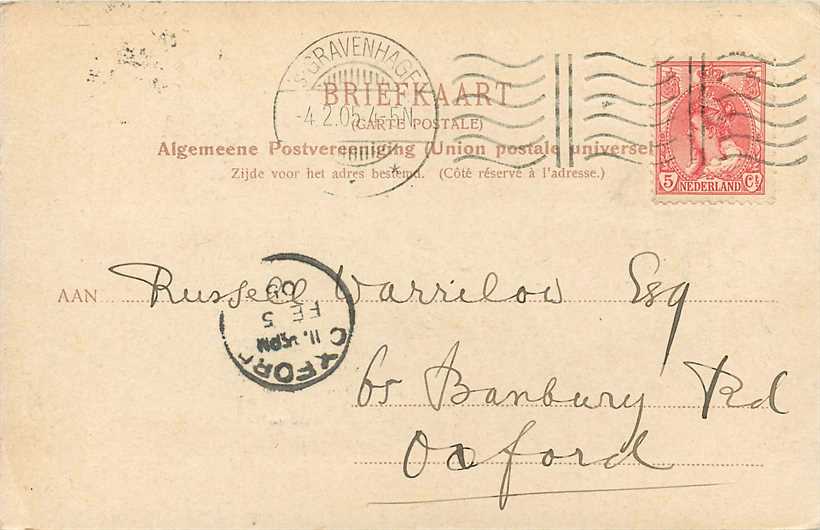 'S GRAVENHAGE
-4.2.05.4-5N
BRIEFKAART
(CARTE POSTALE)
Algemeene Postvereeniging (Union postale universel
Zijde voor het adres bestemd. (Côté réservé à l'adresse.)
5 NEDERLAND Ct
AAN Russell Warrilow Esq
OXFORD
FE 5
05
65 Banbury Rd
Oxford